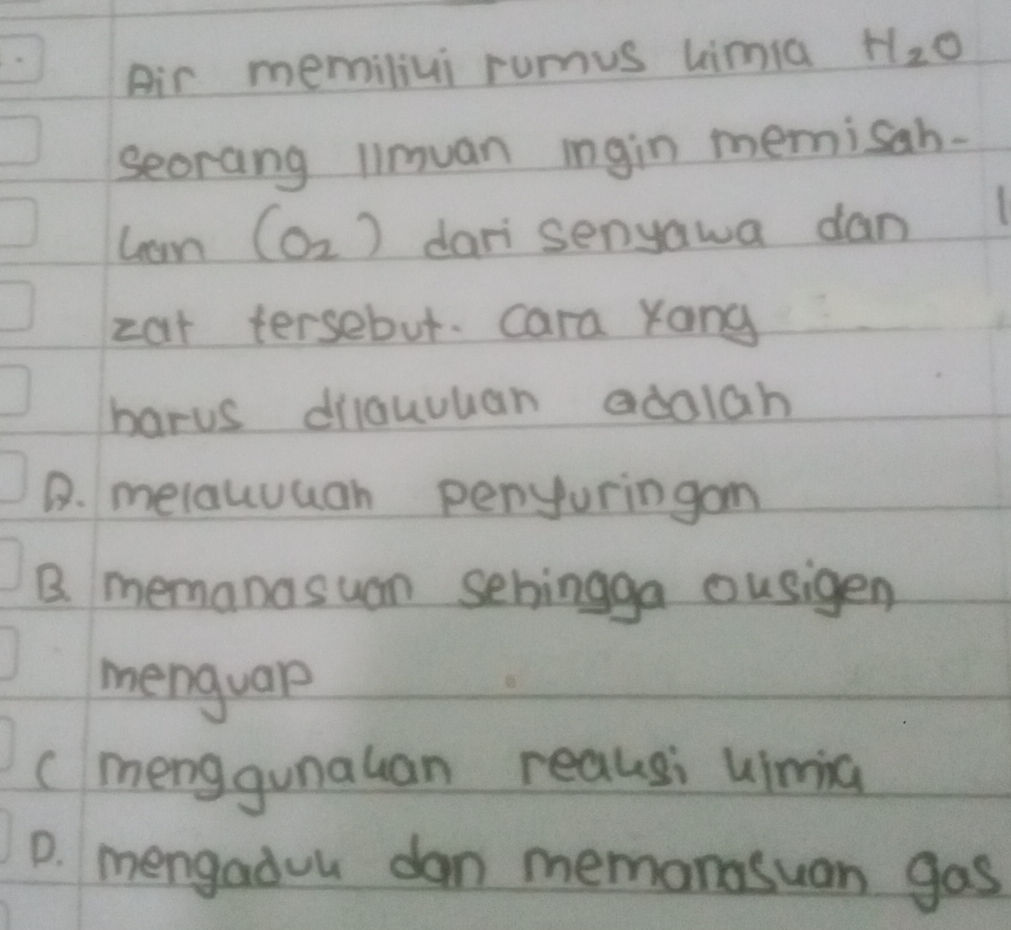 Air memiliki rumus kimia H₂O
seorang ilmuan ingin memisah-
kan (O₂) dari senyawa dan
zat tersebut. cara yang
harus dilakukan adalah
A. melakukan penyuringan
B. memanaskan sehingga oksigen
menguap
C menggunakan reaksi kimia
D. mengaduk dan memanaskan gas